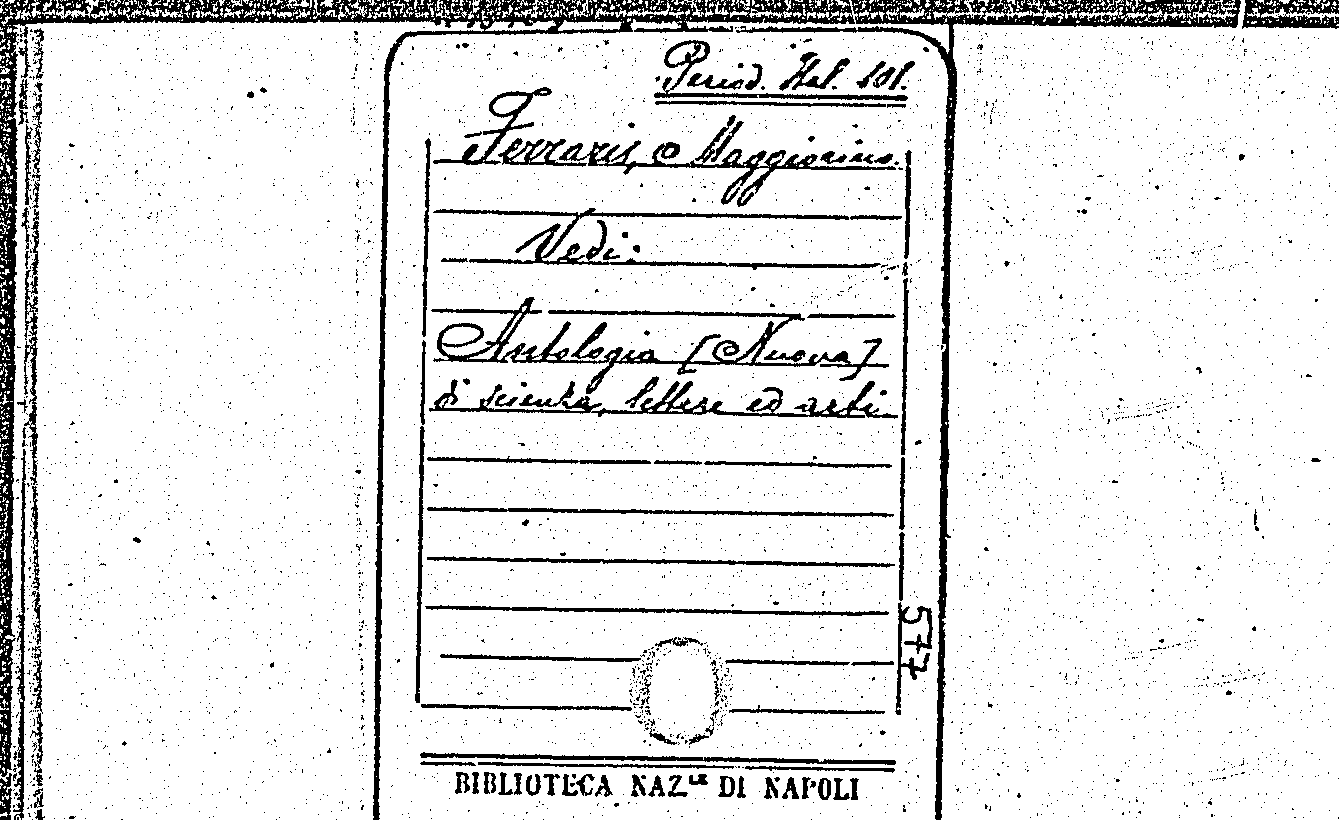 Period. Ital. 101.
Ferraris, Maggiorino.
Vedi:
Antologia [Nuova]
di scienza, lettere ed arti
577
BIBLIOTECA NAZ.LE DI NAPOLI